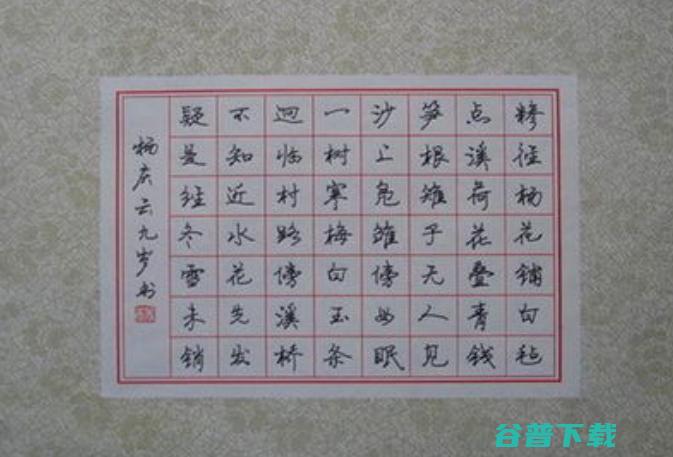 糁径杨花铺白毡
点溪荷花叠青钱
笋根雉子无人见
沙上凫雏傍母眠
一树寒梅白玉条
迥临村路傍溪桥
不知近水花先发
疑是经冬雪未销
杨庆云九岁书
谷普下载